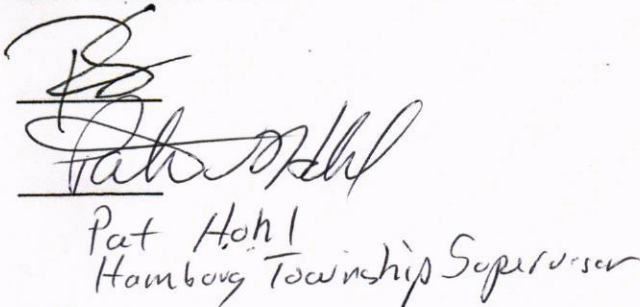 Pat Hohl
Hamburg Township Supervisor